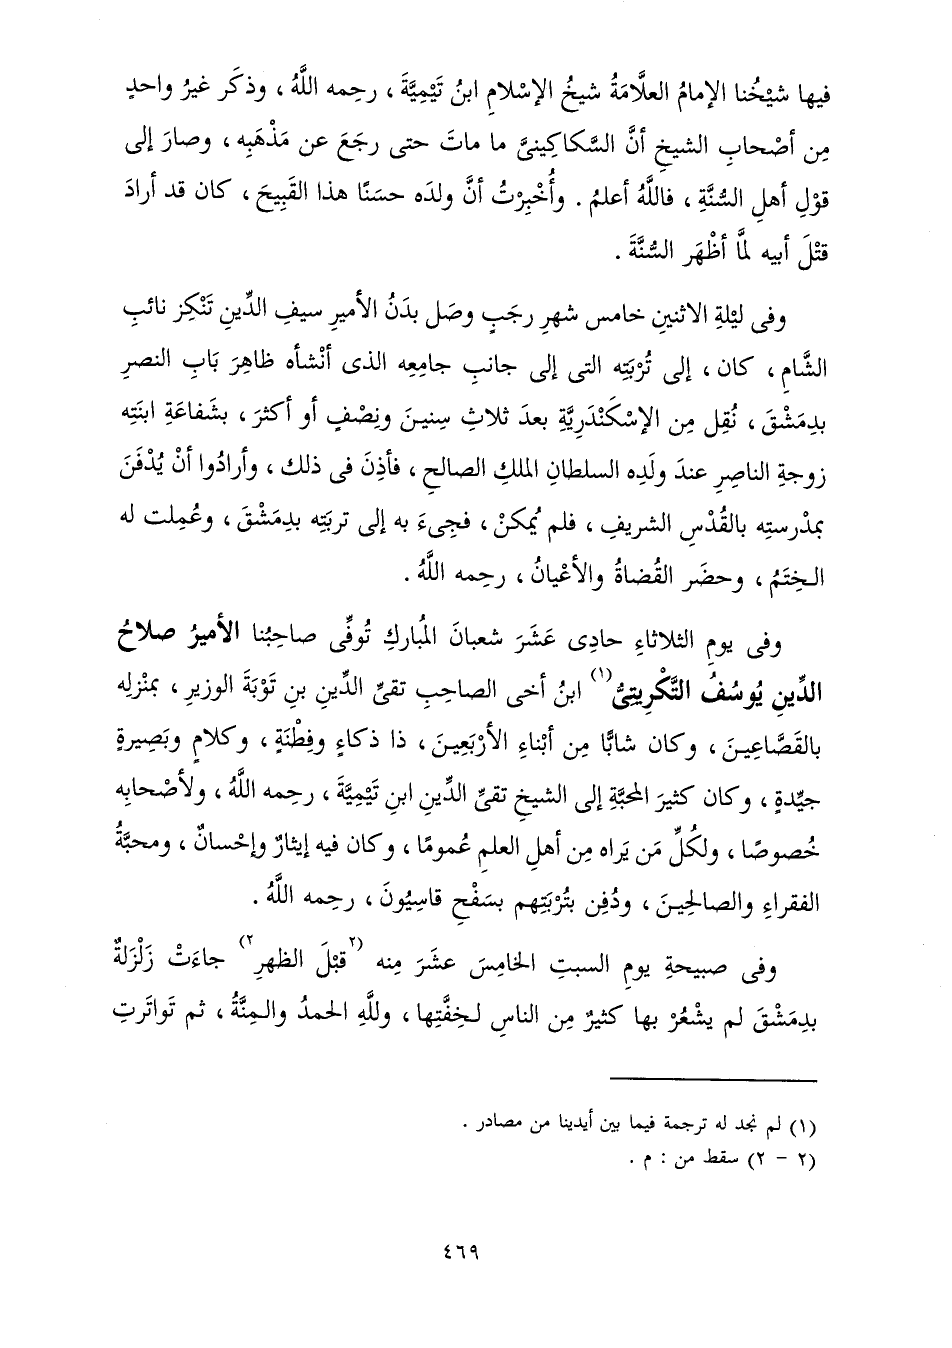 فيها شيْخُنا الإمامُ العلَّامَةُ شيخُ الإسْلامِ ابنُ تَيْمِيَّةَ ، رحِمه اللَّهُ ، وذكَر غيرُ واحدٍ
مِن أصْحابِ الشيخِ أنَّ السَّكاكِينىَّ ما ماتَ حتى رجَعَ عن مَذْهَبِه ، وصارَ إلى
قوْلِ أهلِ السُّنَّةِ ، فاللَّهُ أعلمُ . وأُخْبِرْتُ أنَّ ولدَه حسَنًا هذا القَبِيحَ ، كان قد أرادَ
قتْلَ أبيه لمَّا أظْهَر السُّنَّةَ .
وفى ليْلةِ الاثنينِ خامس شهرِ رجَبٍ وصَل بدَنُ الأميرِ سيفِ الدِّينِ تَنْكِز نائبِ
الشَّامِ ، كان ، إلى تُرْبَتِه التى إلى جانبِ جامِعِه الذى أنْشأه ظاهِرَ بَابِ النصرِ
بدِمَشْقَ ، نُقِل مِن الإسْكَنْدَرِيَّةِ بعدَ ثلاثِ سِنينَ ونِصْفٍ أو أكثرَ ، بشَفاعَةِ ابنَتِه
زوجةِ الناصِرِ عندَ ولَدِه السلطانِ الملكِ الصالحِ ، فأذِنَ فى ذلك ، وأرادُوا أنْ يُدْفَنَ
بمدْرستِه بالقُدْسِ الشريفِ ، فلم يُمكنْ ، فجِىءَ به إلى تربَتِه بدِمَشْقَ ، وعُمِلت له
الخِتَمُ ، وحضَر القُضاةُ والأعْيانُ ، رحِمه اللَّهُ .
وفى يومِ الثلاثاءِ حادِى عَشَرَ شعبانَ المُباركِ تُوفِّى صاحِبُنا الأميرُ صلاحُ
الدِّينِ يُوسُفُ التَّكْرِيتِىُّ(١) ابنُ أخى الصاحِبِ تقىِّ الدِّينِ بنِ تَوْبَةَ الوزيرِ ، بمَنْزلِه
بالقَصَّاعِينَ ، وكان شابًّا مِن أبْناءِ الأرْبَعِينَ ، ذا ذكاءٍ وفِطْنَةٍ ، وكلامٍ وبَصِيرةٍ
جيِّدةٍ ، وكان كثيرَ المحبَّةِ إلى الشيخِ تقىِّ الدِّينِ ابنِ تَيْمِيَّةَ ، رحِمه اللَّهُ ، ولأصْحابِه
خُصوصًا ، ولكُلِّ مَن يَراه مِن أهلِ العلمِ عُمومًا ، وكان فيه إيثارٌ وإحْسانٌ ، ومحبَّةُ
الفقراءِ والصالحِينَ ، ودُفِن بتُرْبَتِهم بسَفْحِ قاسِيُونَ ، رحِمه اللَّهُ .
وفى صبيحةِ يومِ السبتِ الخامِسَ عشَرَ مِنه (٢قبْلَ الظهرِ٢) جاءَتْ زَلْزَلةٌ
بدِمَشْقَ لم يشْعُرْ بها كثيرٌ مِن الناسِ لخِفَّتِها ، وللَّهِ الحمدُ والمِنَّةُ ، ثم تَواتَرتِ
(١) لم نجد له ترجمة فيما بين أيدينا من مصادر .
(٢ - ٢) سقط من : م .
٤٦٩